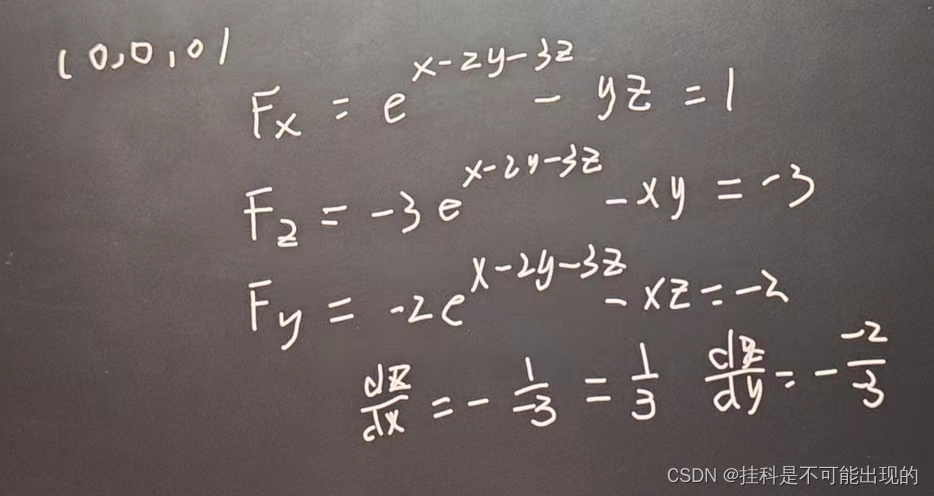 (0,0,0)
Fx = e^{x-2y-3z} - yz = 1
Fz = -3e^{x-2y-3z} - xy = -3
Fy = -2e^{x-2y-3z} - xz = -2
dz/dx = - 1/-3 = 1/3   dz/dy = - -2/-3
CSDN @挂科是不可能出现的